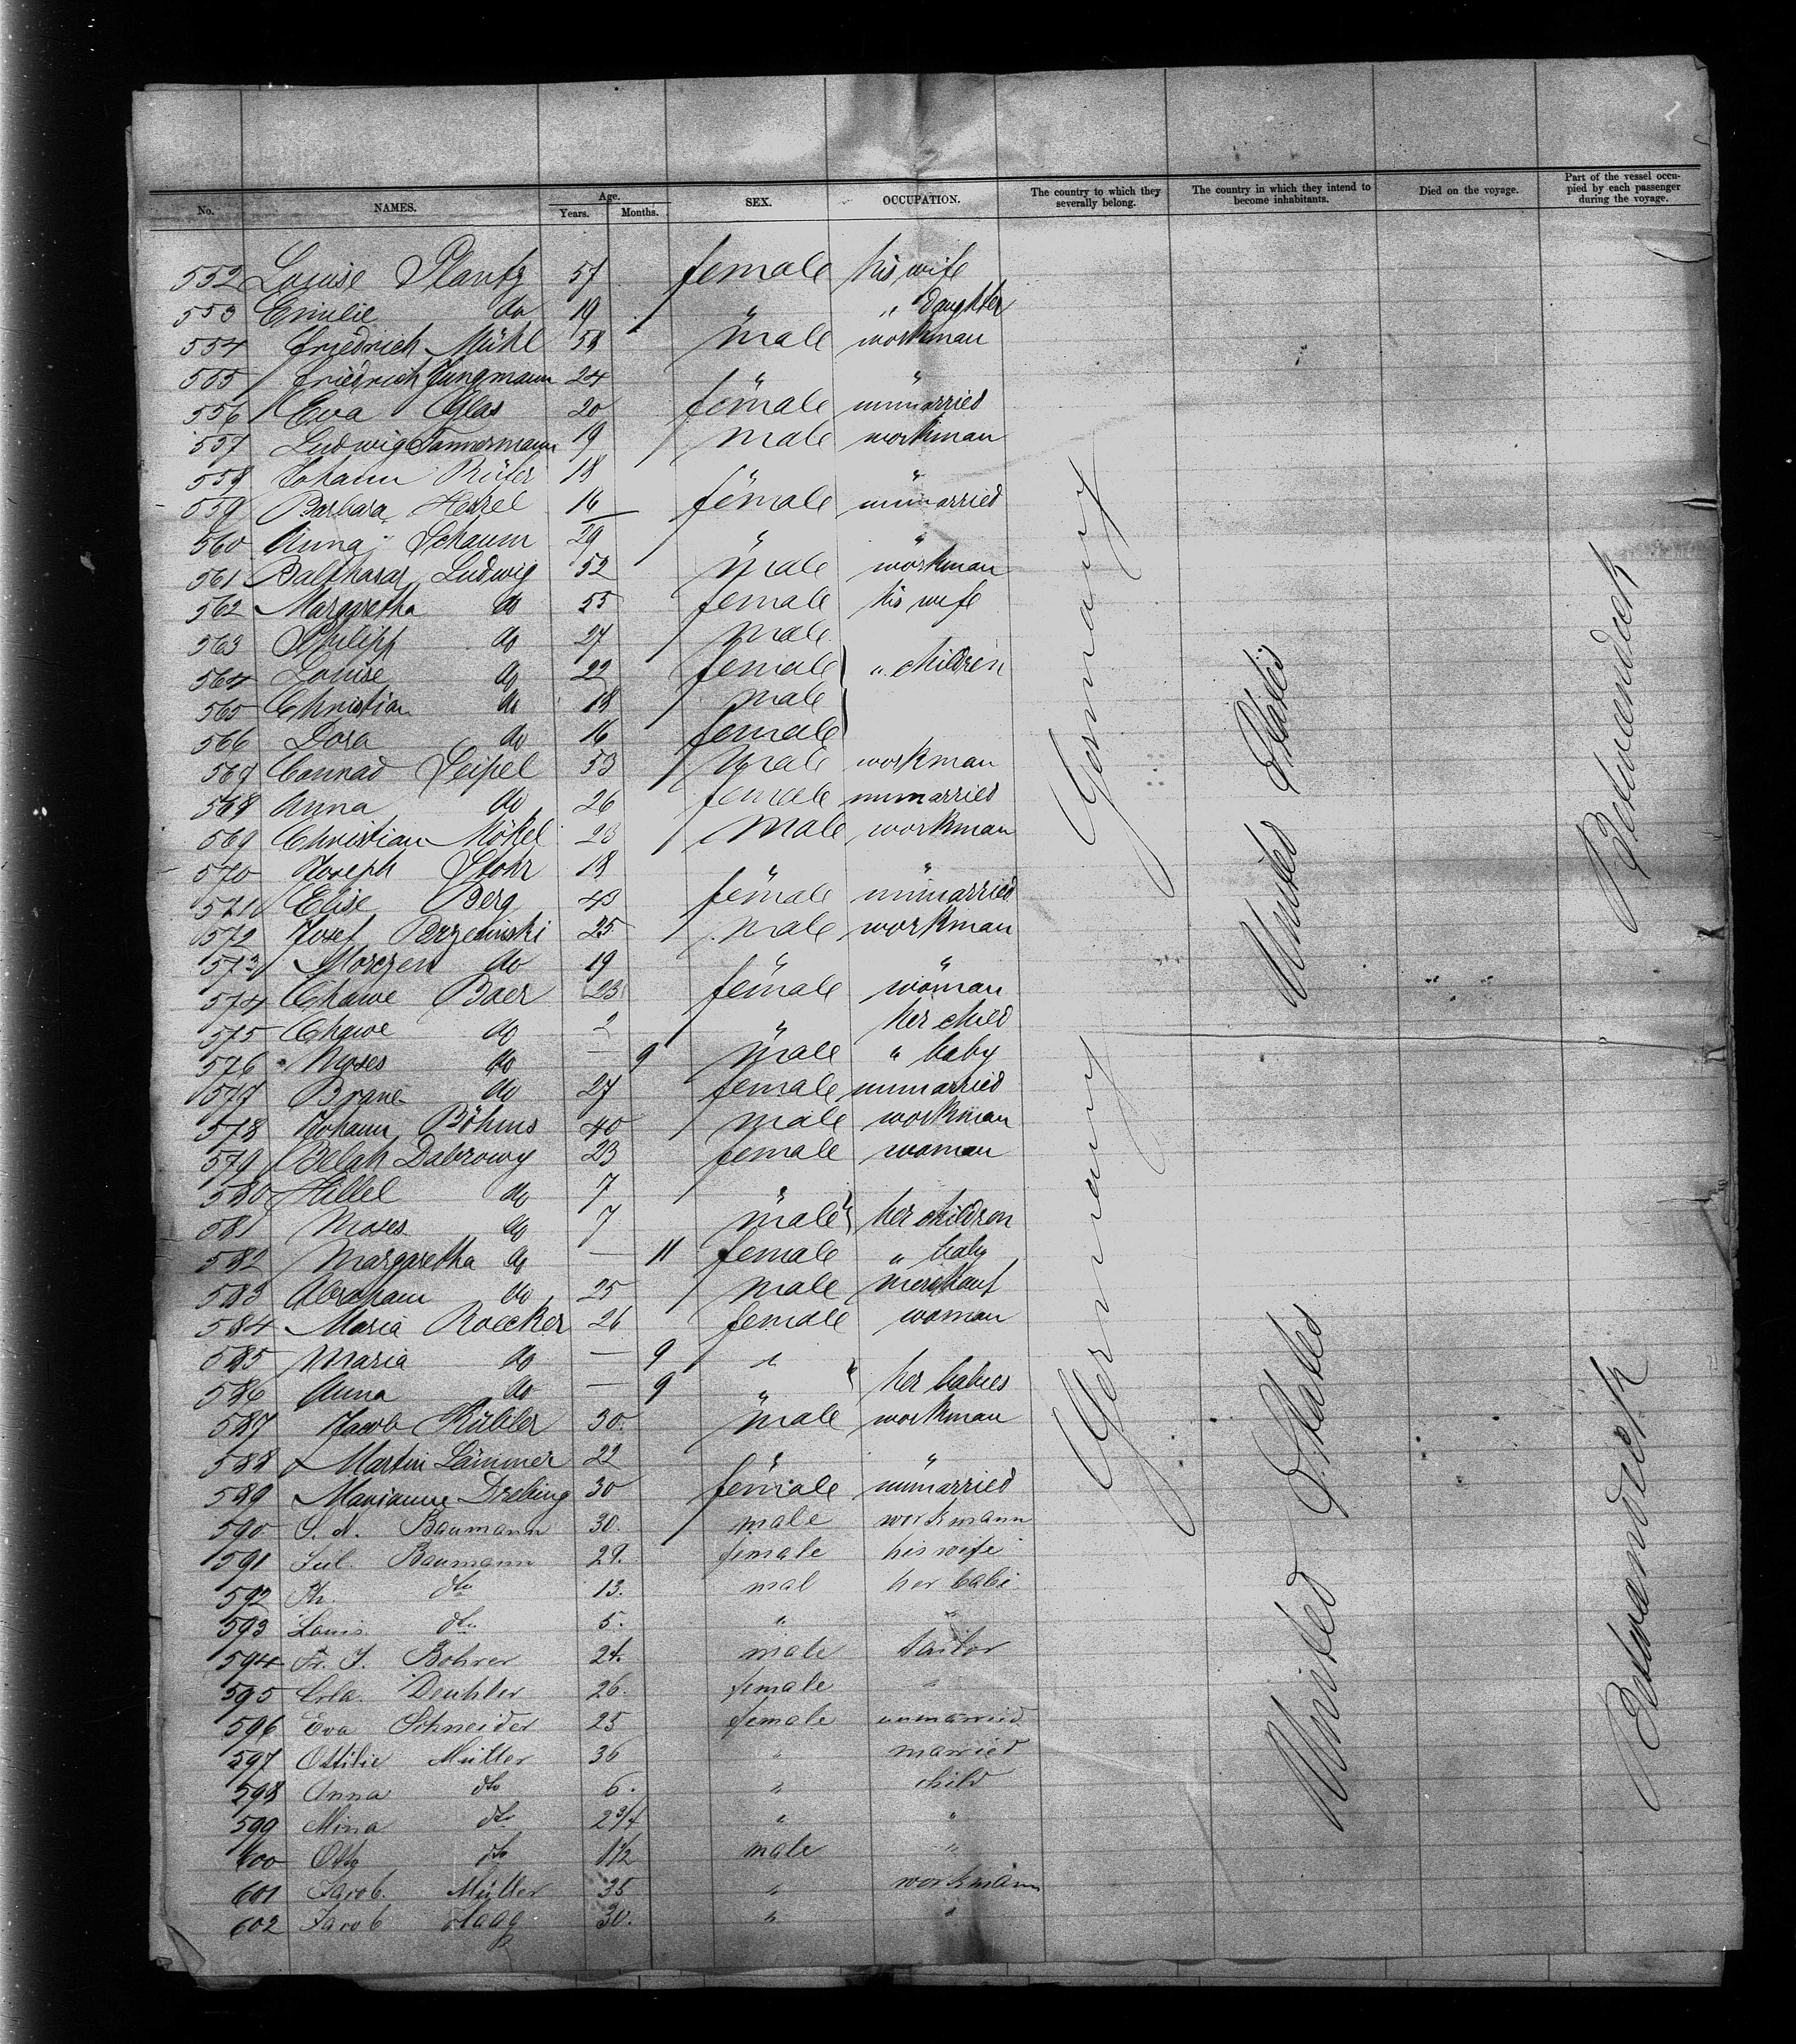 No. NAMES. Age. Years. Months. SEX. OCCUPATION. The country to which they severally belong. The country in which they intend to become inhabitants. Died on the voyage. Part of the vessel occupied by each passenger during the voyage.
552 Louise Plantz 57 female his wife
553 Emilie do 19 " " Daughter
554 Friedrich Mühl 58 male workman
555 Friedrich Jungmann 24 " "
556 Eva Glas 20 female unmarried
557 Ludwig Tannermann 19 male workman
558 Johann 18 " "
559 Barbara Hessel 16 female unmarried
560 Anna Schaum 29 " "
561 Balthasar Ludwig 52 male workman
562 Margaretha do 55 female his wife
563 Philipp do 27 male
564 Louise do 22 female " children
565 Christian do 18 male
566 Dora do 16 female
567 Connad Seipel 53 male workman
568 Anna do 26 female unmarried
569 Christian Mökel 23 male workman
570 Joseph Stohr 18 " "
571 Elise Berg 43 female unmarried
572 Josef 25 male workman
573 do 19 " "
574 Chawe Baer 23 female woman
575 Chawe do 2 " her child
576 Moses do — 9 male " baby
577 Brane do 27 female unmarried
578 Johann Böhms 40 male workman
579 Belah Dabrowy 23 female woman
580 Hillel do 7 "
581 Moses do 7 male her children
582 Margaretha do — 11 female " baby
583 Abraham do 25 male merchant
584 Maria Roecker 26 female woman
585 Maria do — 9 "
586 Anna do — 9 " her babies
587 Jacob Kübler 30. male workman
588 Martin Lämmer 22 " "
589 Marianne Dreling 30 female unmarried
590 Baumann 30. male workmann
591 Jul. Baumann 29. female his wife
592 dto 13. mal her babi
593 Louis dto 5. " "
594 Fr. J. Bohrer 24. male tailor
595 Deuhter 26. female "
596 Eva Schneider 25 female unmarried
597 Ottilie Mütter 36 " married
598 Anna dto 6. " child
599 Mina dto 2 3/4 " "
600 Otto dto 1 1/2 male "
601 Jacob. Müller 35 " workmann
602 Jacob Haag 30. " "
Germany
United States
Betweendeck
Germany
United States
Betweendeck